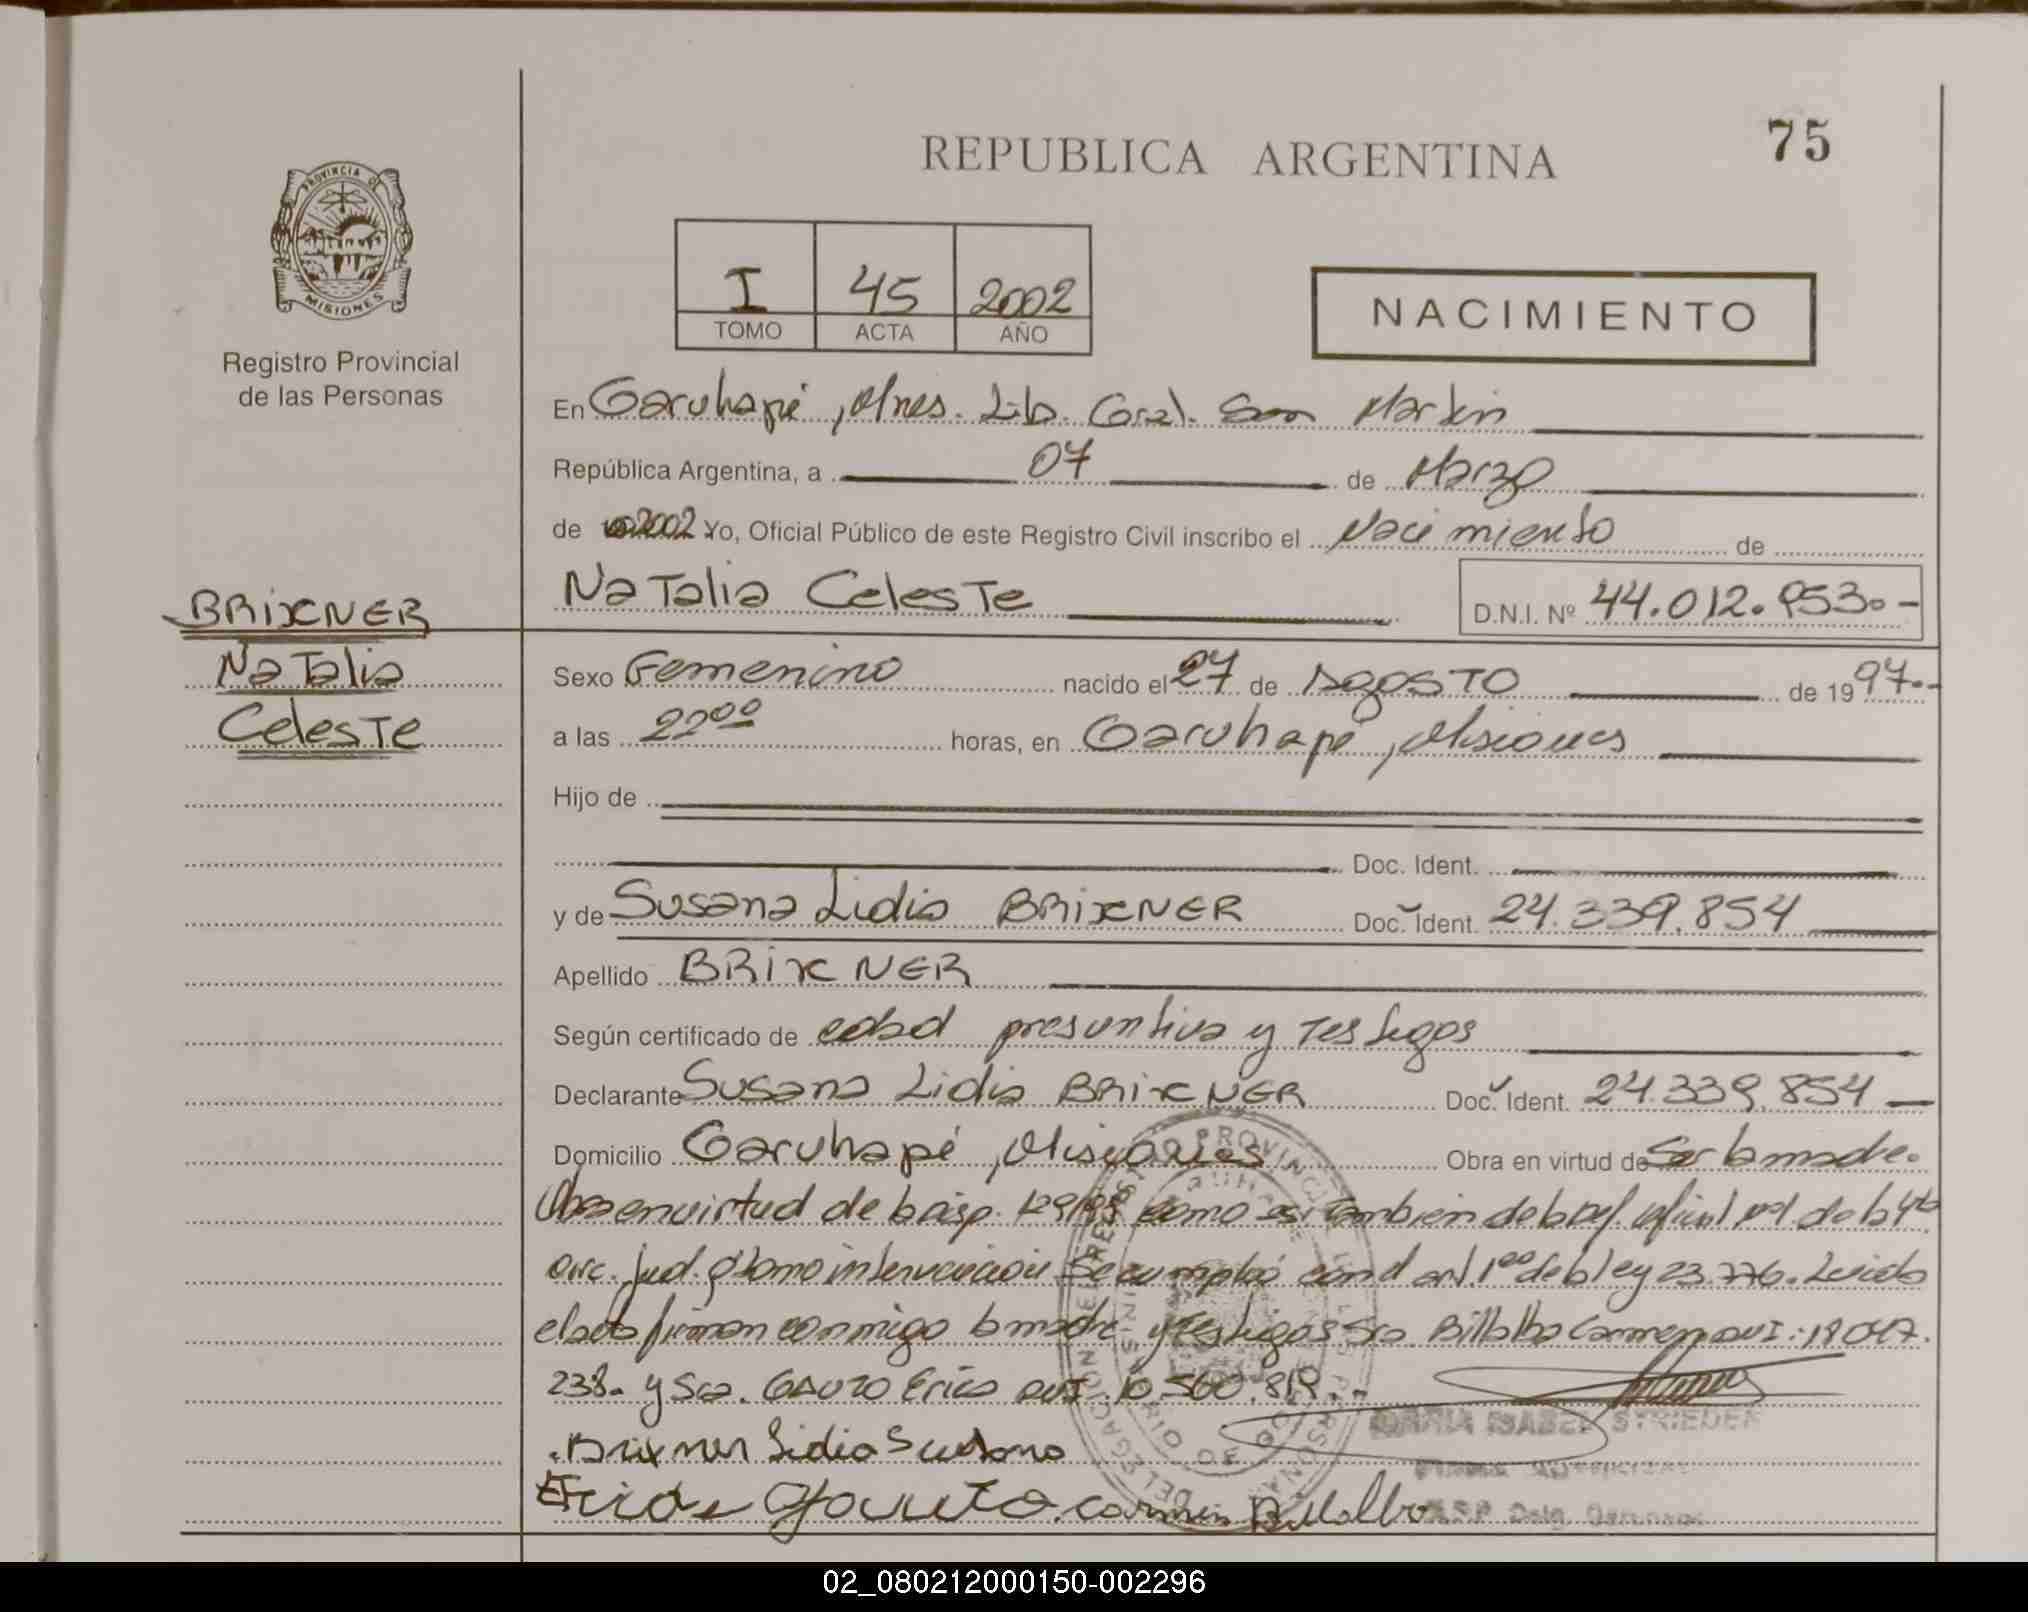 75
REPUBLICA ARGENTINA
PROVINCIA DE
MISIONES
Registro Provincial
de las Personas
I 45 2002
TOMO ACTA AÑO
NACIMIENTO
En Garuhapé, Mnes. Lib. Gral. San Martin
República Argentina, a 07 de Marzo
de 2002 Yo, Oficial Público de este Registro Civil inscribo el Nacimiento de
Natalia Celeste D.N.I. Nº 44.012.953.-
BRIXNER
Natalia
Celeste
Sexo Femenino nacido el 27 de Agosto de 1997.-
a las 22⁰⁰ horas, en Garuhapé, Misiones
Hijo de
Doc. Ident.
y de Susana Lidia BRIXNER Doc. Ident. 24.339.854
Apellido BRIXNER
Según certificado de edad presuntiva y Testigos
Declarante Susana Lidia BRIXNER Doc. Ident. 24.339.854
Domicilio Garuhapé, Misiones Obra en virtud de Ser la madre.
Obra en virtud de la disp. como asi tambien de la def. oficial de la 4ta
circ. jud. q' tomo intervencion. Se cumplió con el art. 1º de la ley 23.776. Leida
el acta firman conmigo la madre y testigos Sra. Billalba Carmen DNI: 18.047.
238. y Sra. GAUTO Erica DNI 10.560.819.
Brixner Lidia Susana
MARIA ISABEL STRIEDER
Erica Gauto. Carmen Billalba
02_080212000150-002296